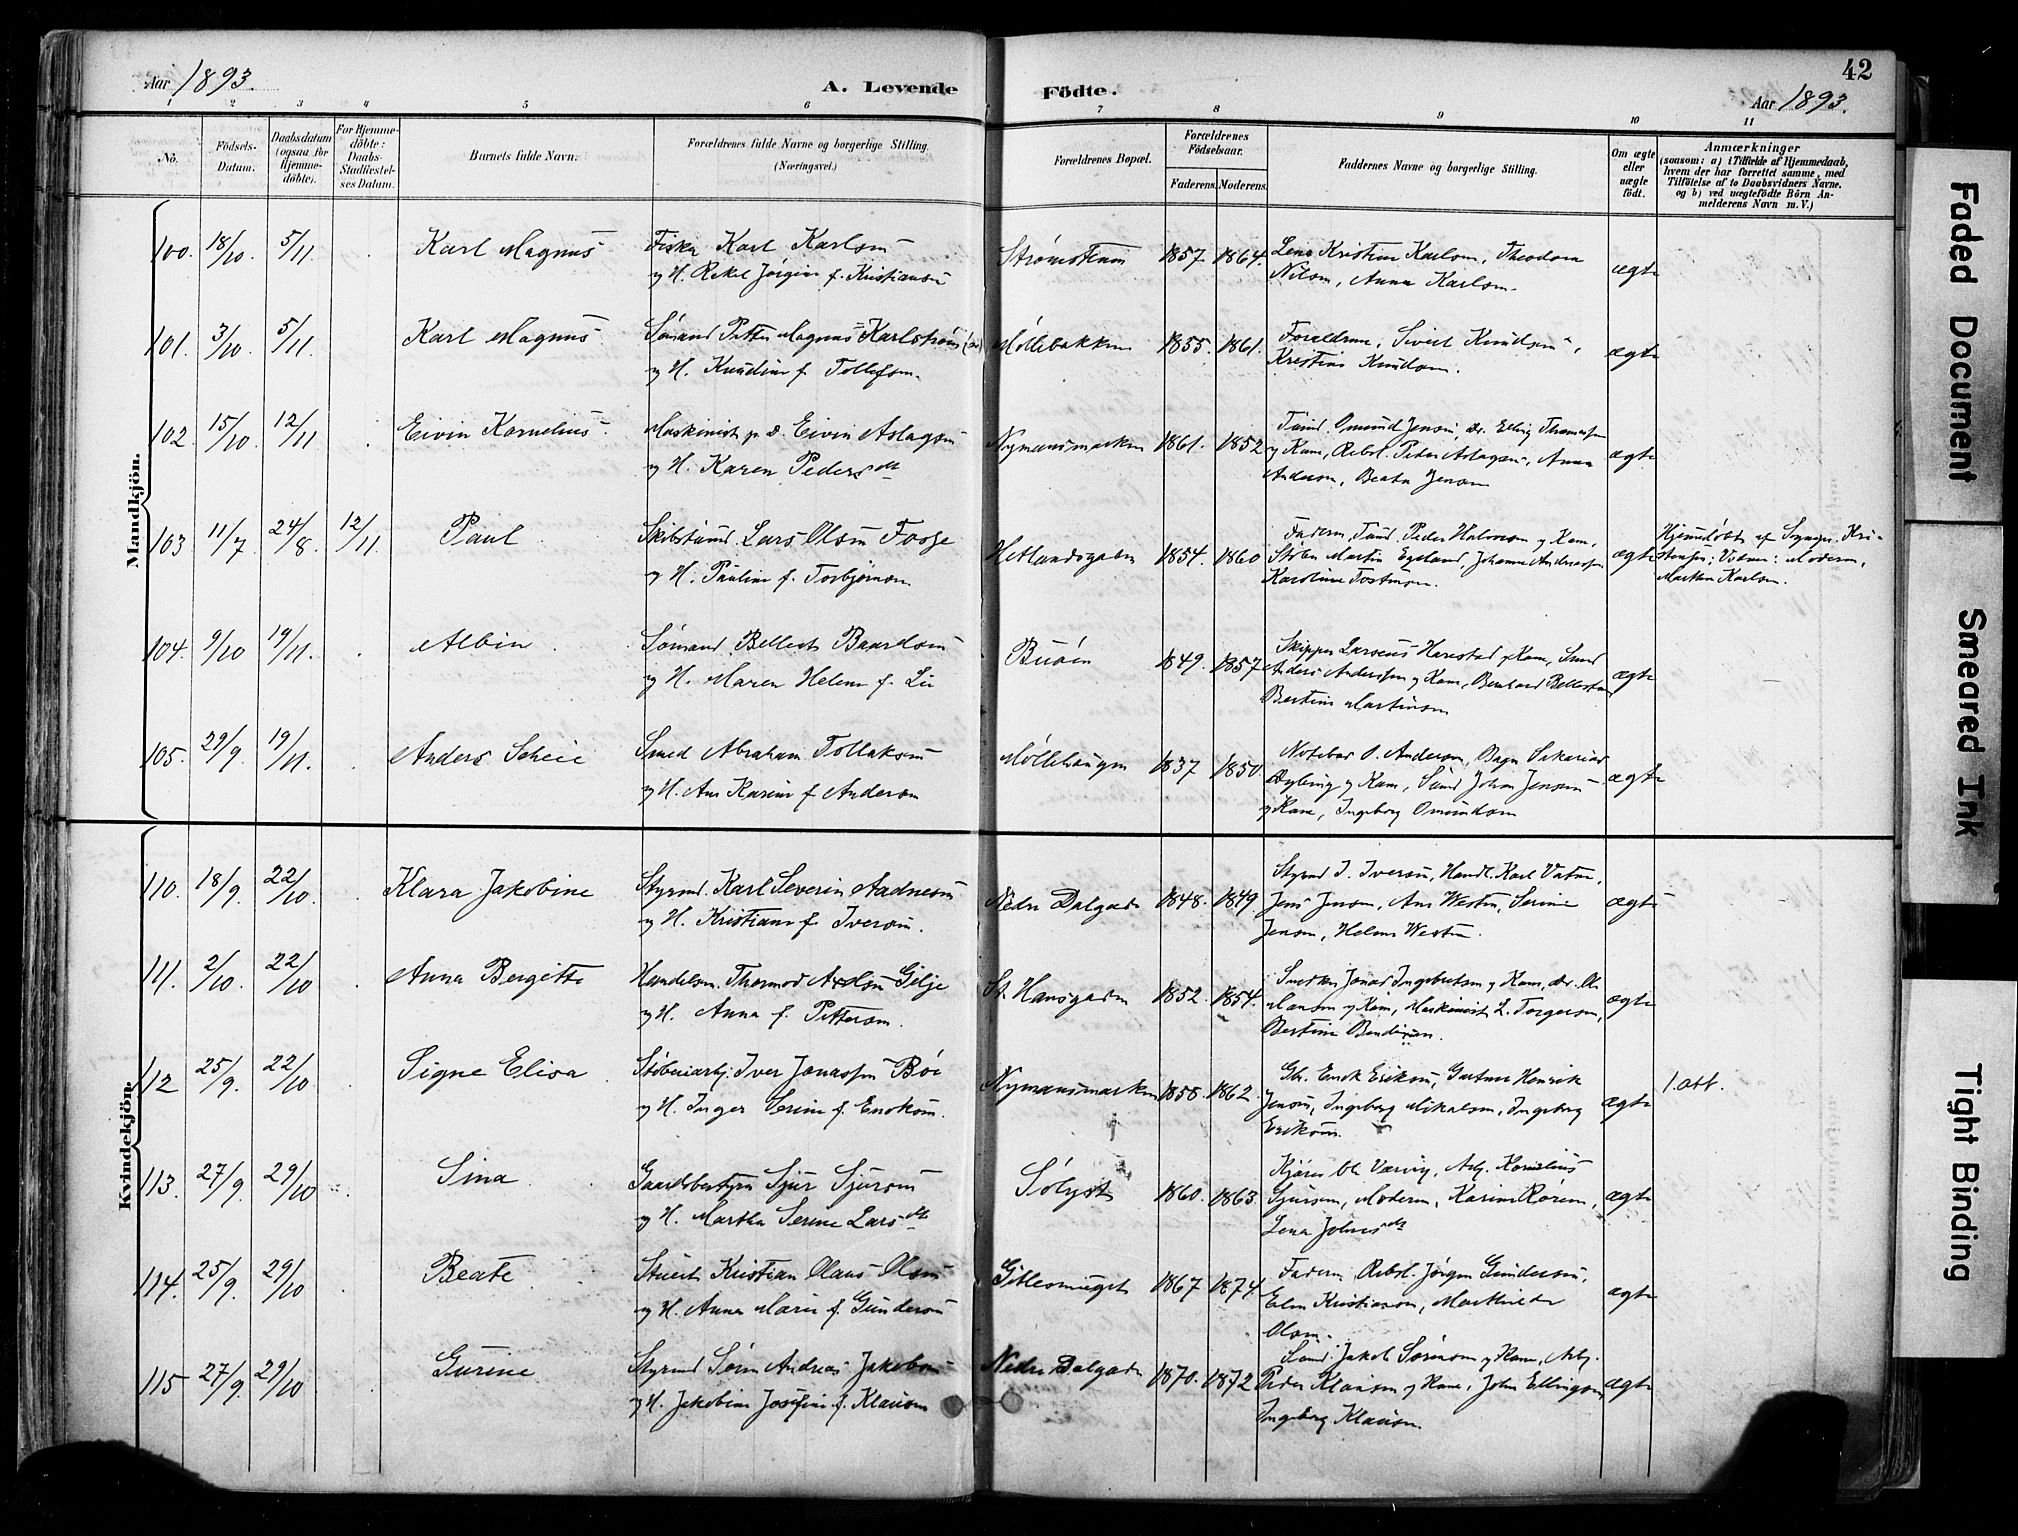 42
Aar 1893.
A. Levende Födte.
Aar 1893.
1 2 3 4 5 6 7 8 9 10 11
No.
Födsels-Datum.
Daabsdatum (ogsaa for Hjemme-döbte).
For Hjemme-döbte: Daabs-Stadfæstel-ses Datum.
Barnets fulde Navn.
Forældrenes fulde Navne og borgerlige Stilling. (Næringsvei.)
Forældrenes Bopæl.
Forældrenes Födselsaar.
Faderens. Moderens.
Faddernes Navne og borgerlige Stilling.
Om ægte eller uægte födt.
Anmærkninger
(saasom: a) i Tilfælde af Hjemmedaab, hvem der har forrettet samme, med Tilföielse af to Daabsvidners Navne, og b) ved uægtefödte Börn An-melderens Navn m. V.)
Mandkjön.
100. 18/10. 5/11. Karl Magnus Fisker Karl Karlsen
og H. Rakel Jørgine f. Kristiansen
Strømstenen 1857. 1864. Lena Kristine Karlsen, Theodora
Nilsen, Anna Karlsen. ægte
101. 3/10 5/11. Karl Magnus Sømand Petter Magnus Karlstrøm
og H. Knudine f. Tollefsen.
Møllebakken 1855. 1861. Forældrene, Sivert Knudsen,
Kristine Knudsen. ægte
102. 15/10. 12/11 Eivin Kornelius Maskinist p. D. Eivin Aslagsen
og H. Karen Pedersdt
Nymansmarken 1861. 1852 Tømd. Omund Jensen, Elling Thomassen
og Kone, Rebsl. Peder Aslagsen, Anna
Andersen, Beata Jensen ægte
103 11/7 24/8. 12/11. Paul Skibstømd. Lars Olsen Fosse
og H. Pauline f. Torbjørnsen
Hetlandsgaden 1854. 1860 Faderen, Tømd. Peder Halvorsen og Kone,
Støber Martin Egeland, Johanne Andreassen
Karoline Tostensen. ægte
Hjemmedøbt af Sognepr. Kri-
stensen; Vidner: Moderen,
Marthe Karlsen.
104. 9/10 19/11. Albin Sømand Bellest Baardsen
og H. Maren Helene f. Lie
Buøen 1849. 1857 Skipper Larseus Harestad og Kone, Smed
Anders Anderssen og Kone, Bernhard Bellestsen
Bertine Martinsen ægte
105. 29/9. 19/11. Anders Scheie Smed Abraham Tollaksen
og H. Ane Karine f. Andersen
Møllehaugen 1837 1850. Notebas O. Andersen, Bagm. Sakarias
og Kone, Sømd. Johan Jensen
og Kone, Ingeborg Omundsen ægte
Kvindekjön.
110. 18/9. 22/10. Klara Jakobine Styrmd. Karl Severin Aadnesen
og H. Kristiane f. Iversen.
Nedre Dalgade 1848. 1849. Styrmd I. Iversen, Handl. Karl Vatne,
Jens Jensen, Ane Westen, Serine
Jensen, Helene Westen. ægte
111. 2/10. 22/10 Anna Bergitte Handelsm. Thormod Axelsen Gilje
og H. Anna f. Pettersen.
St. Hansgaden 1852. 1854. Snedker Jonas Ingebretsen og Kone, Ole
Hansen og Kone, Maskinist L. Torgersen,
Bertine Bendiksen. ægte
112 25/9. 22/10 Signe Elisa Støberiarbj. Iver Jonassen Bøe
og H. Inger Serine f. Enoksen.
Nymansmarken 1858. 1862. Gbr. Enok Eriksen, Gustava Henrik
Jensen, Ingeborg Mikalsen, Ingeborg
Eriksen. ægte
1. att.
113. 27/9. 29/10 Sina Gaardsbestyrer Sjur Sjursen
og H. Martha Serine Larsdt
Sølyst 1860. 1863. Kjører Ole Værvig, Arb. Kornelius
Sjursen, Moderen, Karine Røren,
Lena Johnsdt ægte
114. 25/9. 29/10 Beate Stuert Kristian Olaus Olsen
og H. Anna Marie f. Gundersen
Gitlesmuget 1867 1874. Faderen, Rebsl. Jørgen Gundersen,
Elen Kristiansen, Marthilde
Olsen. ægte
115 27/9. 29/10 Gurine Styrmd Søren Andreas Jakobsen
og H. Jakobine Josefine f. Klausen
Nedre Dalgade 1870. 1872 Sømd. Jakob Sørensen og Kone, Arb.
Peder Klausen og Kone, John Ellingsen,
Ingeborg Klausen. ægte
Faded Document
Smeared Ink
Tight Binding